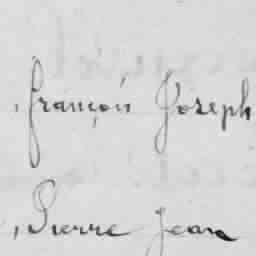 , françois Joseph
, Pierre Jean